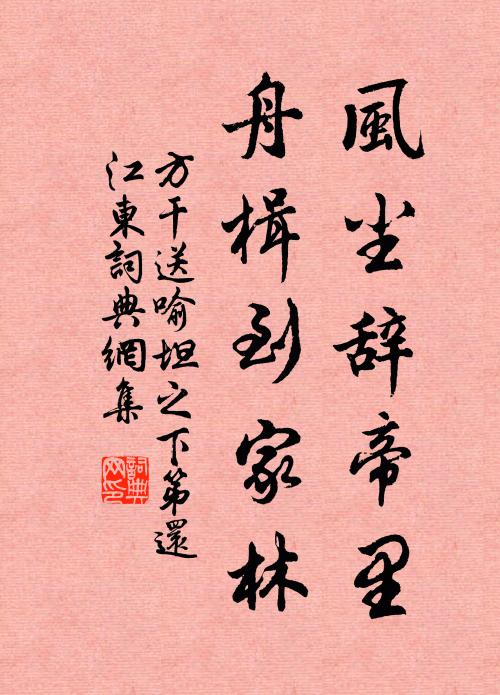 風尘辞帝里
舟楫到家林
方干送喻坦之下第還
江東詞典網集
詞典网印